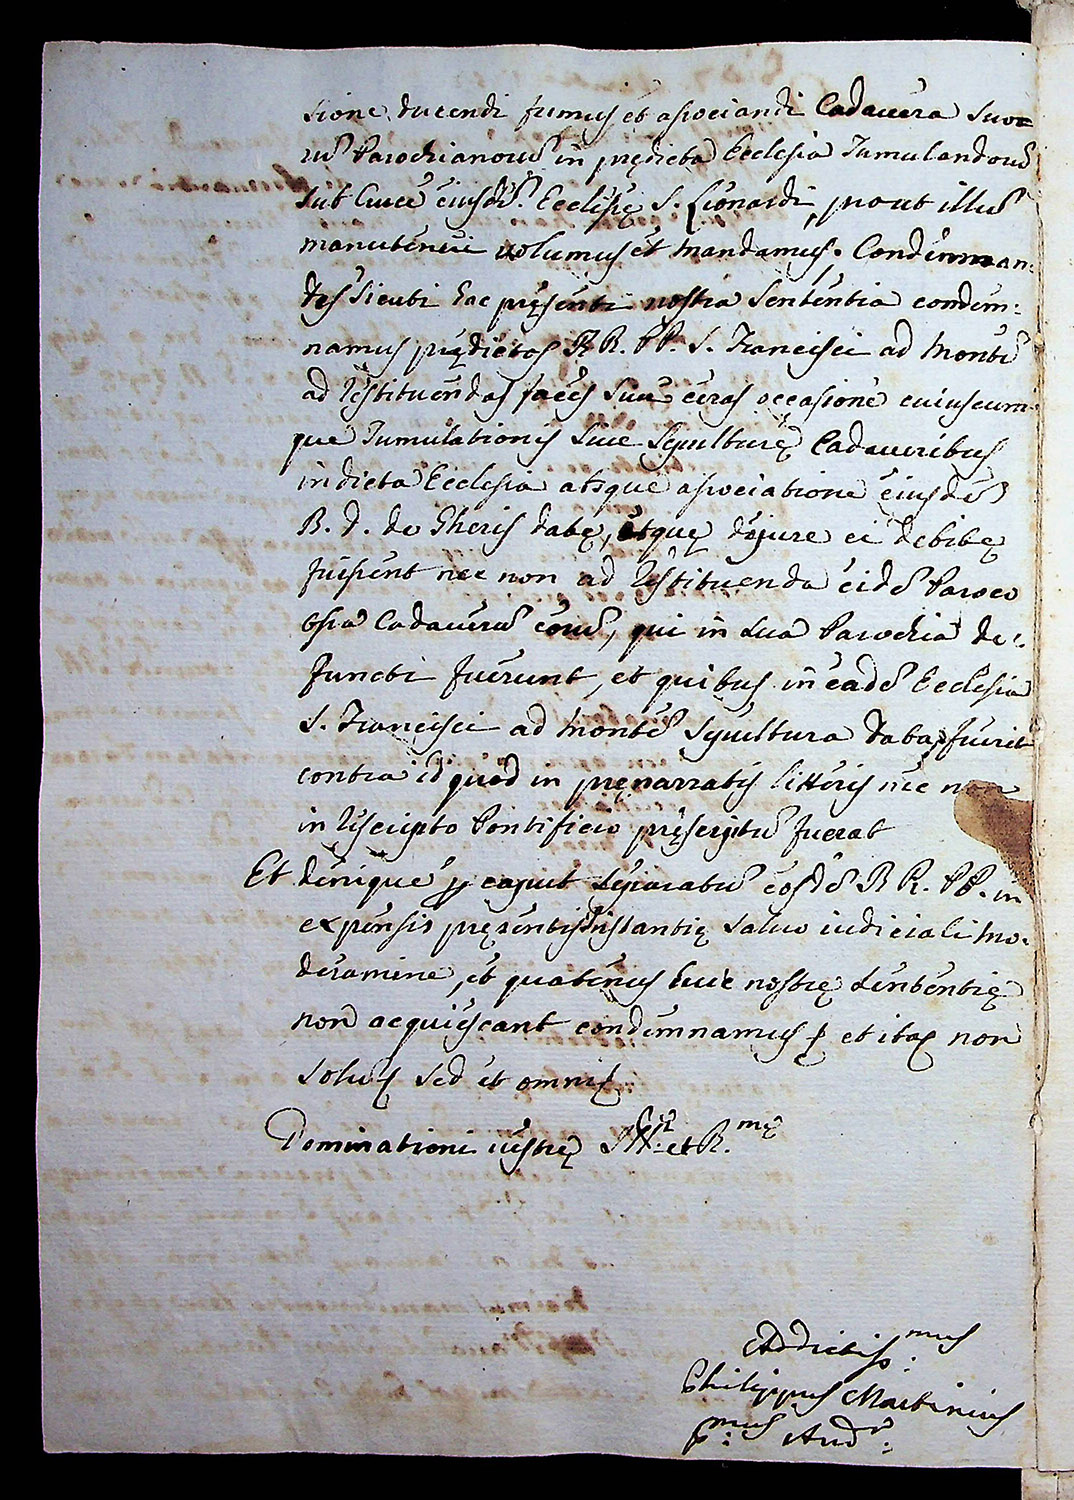 sione, ducendi funus et associandi Cadavera suo=
rū Parochianorū in prędicta Ecclesia Tumulandorū
sub Cruce eiusdē Ecclesię S. Leonardi, prout illū
manuteneri volumus et mandamus. Condemnan-
tes sicuti hac pręsenti nostra sententia condem:
namus prędictos RR. PP. S. Francisci ad Montē
ad restituendas faces sive ceras occasione cuiuscum-
que Tumulationis sive Sepulturę Cadaveribus
in dicta Ecclesia absque associatione eiusdē
R. D. de Gheris datę, atque de jure ei debitę
fuissent nec non ad restituenda eidē Paroco
ossa Cadaverū eorū, qui in sua Parochia de:
functi fuerunt, et quibus in eadē Ecclesia
S. Francisci ad Montē Sepultura data fuerit
contra id quod in pręnarratis litteris nec non
in rescripto Pontificio pręscriptū fuerat
Et denique ꝑ caput separatū eosdē RR. PP. in
expensis pręsentis Instantię salvo iudiciali mo-
deramine, et quatenus huic nostrę sententię
non acquiescant condemnamus, et itaq non
solus sed et omnis
Dominationi vestrę Ill.ᵉ et R.ᵐᵉ
Addictiss.mus
Philippus Martinius
P.mus Aud.r